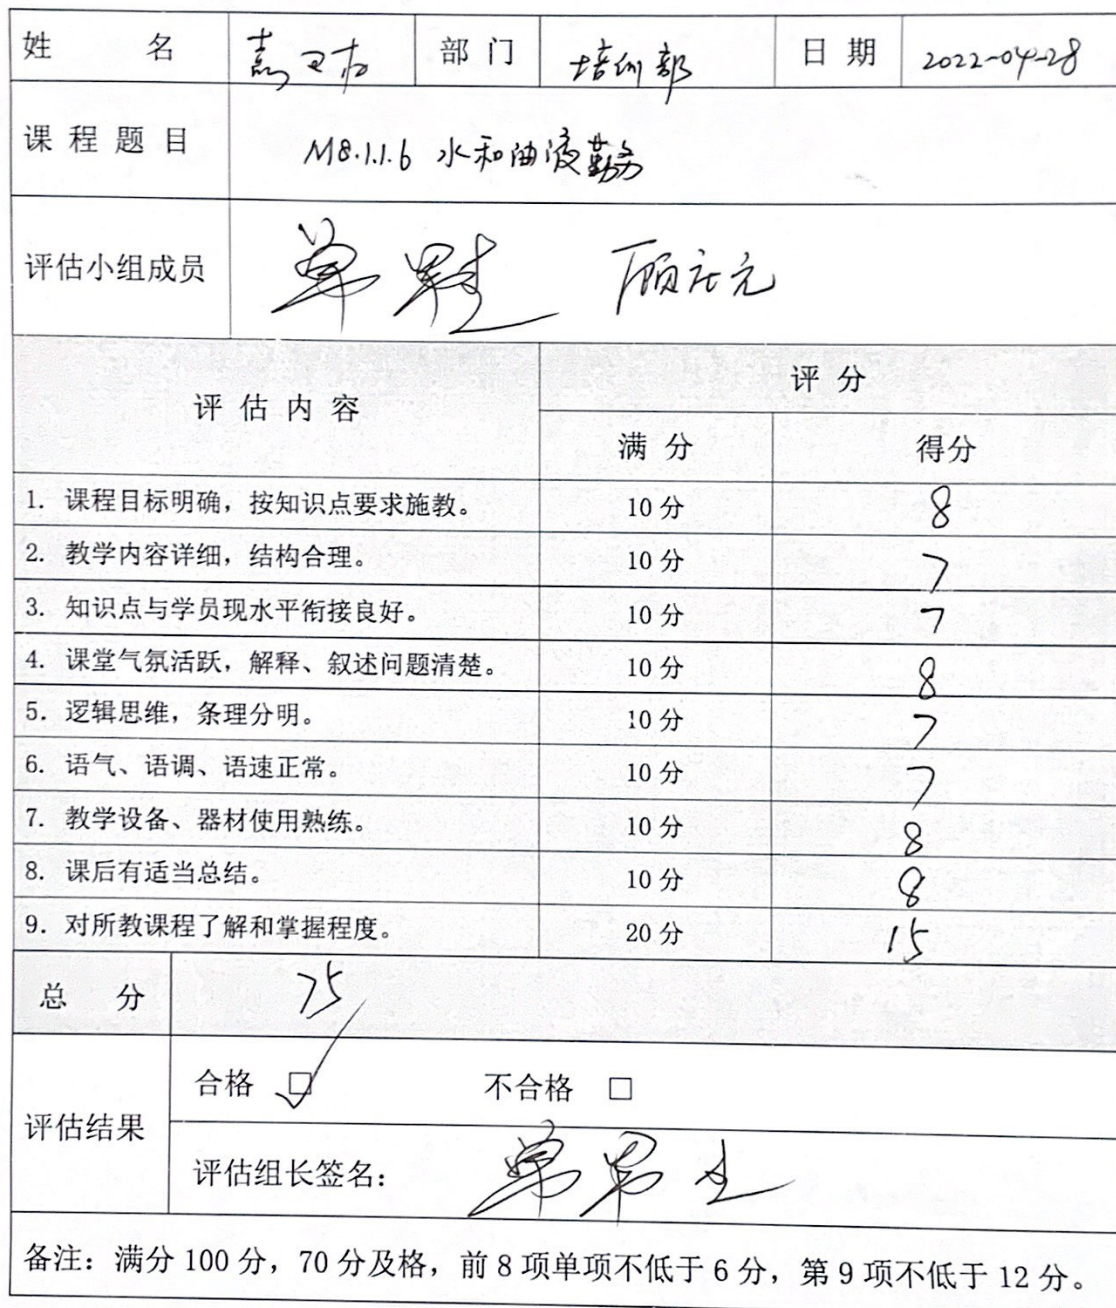 姓 名 部 门 培训部 日 期 2022-04-28
课 程 题 目 M8.1.1.6 水和油液勤务
评估小组成员
评 估 内 容 评 分
满 分 得分
1. 课程目标明确，按知识点要求施教。 10 分 8
2. 教学内容详细，结构合理。 10 分 7
3. 知识点与学员现水平衔接良好。 10 分 7
4. 课堂气氛活跃，解释、叙述问题清楚。 10 分 8
5. 逻辑思维，条理分明。 10 分 7
6. 语气、语调、语速正常。 10 分 7
7. 教学设备、器材使用熟练。 10 分 8
8. 课后有适当总结。 10 分 8
9. 对所教课程了解和掌握程度。 20 分 15
总 分 75
合格 ☑ 不合格 □
评估结果
评估组长签名：
备注：满分 100 分，70 分及格，前 8 项单项不低于 6 分，第 9 项不低于 12 分。